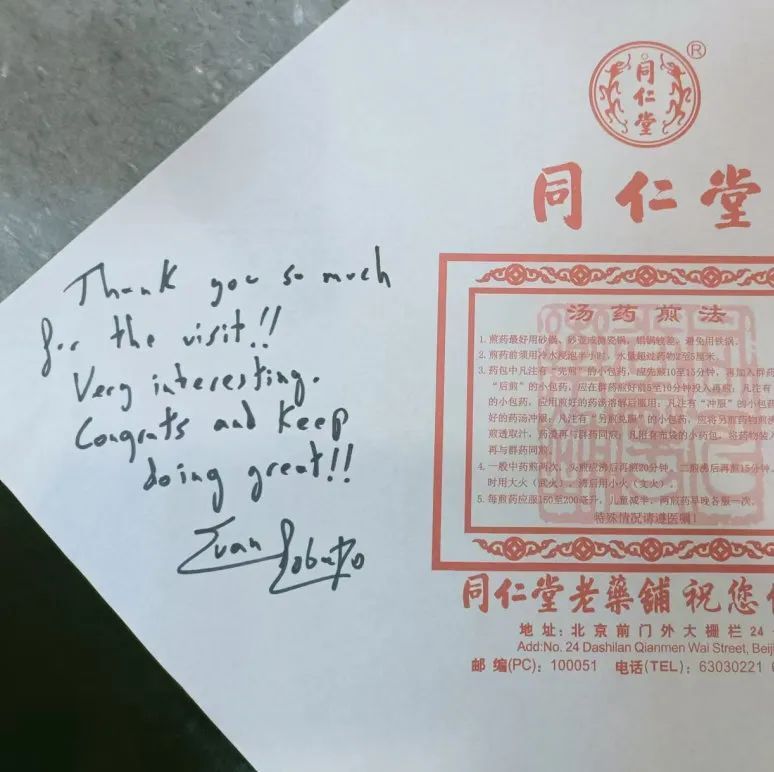 Thank you so much
for the visit!!
Very interesting.
Congrats and keep
doing great!!
®
同仁堂
同仁堂
汤药煎法
1. 煎药最好用砂锅、砂壶或搪瓷锅、铝锅较差，避免用铁锅。
2. 煎药前须用冷水浸泡半小时，水量超过药物2至5厘米。
3. 药包中凡注有“先煎”的小包药，应先煎10至15分钟，再加入群药
“后煎”的小包药，应在群药煎好前5至10分钟投入再煎；凡注有
的小包药，应用煎好的药汤溶解后服用；凡注有“冲服”的小包药
好的药汤冲服；凡注有“另煎兑服”的小包药，应将另煎药物煎沸
煎透取汁，药渣再与群药同煎；凡附有布袋的小药包，将药物装入
再与群药同煎。
4. 一般中药煎两次，头煎应沸后再煎20分钟，二煎沸后再煎15分钟，
时用大火（武火），沸后用小火（文火）。
5. 每煎药应服150至200毫升，儿童减半，两煎药早晚各服一次。
特殊情况请遵医嘱！
同仁堂老藥铺 祝您
地址：北京前门外大栅栏24
Add:No. 24 Dashilan Qianmen Wai Street, Beij
邮编(PC)：100051 电话(TEL)：63030221